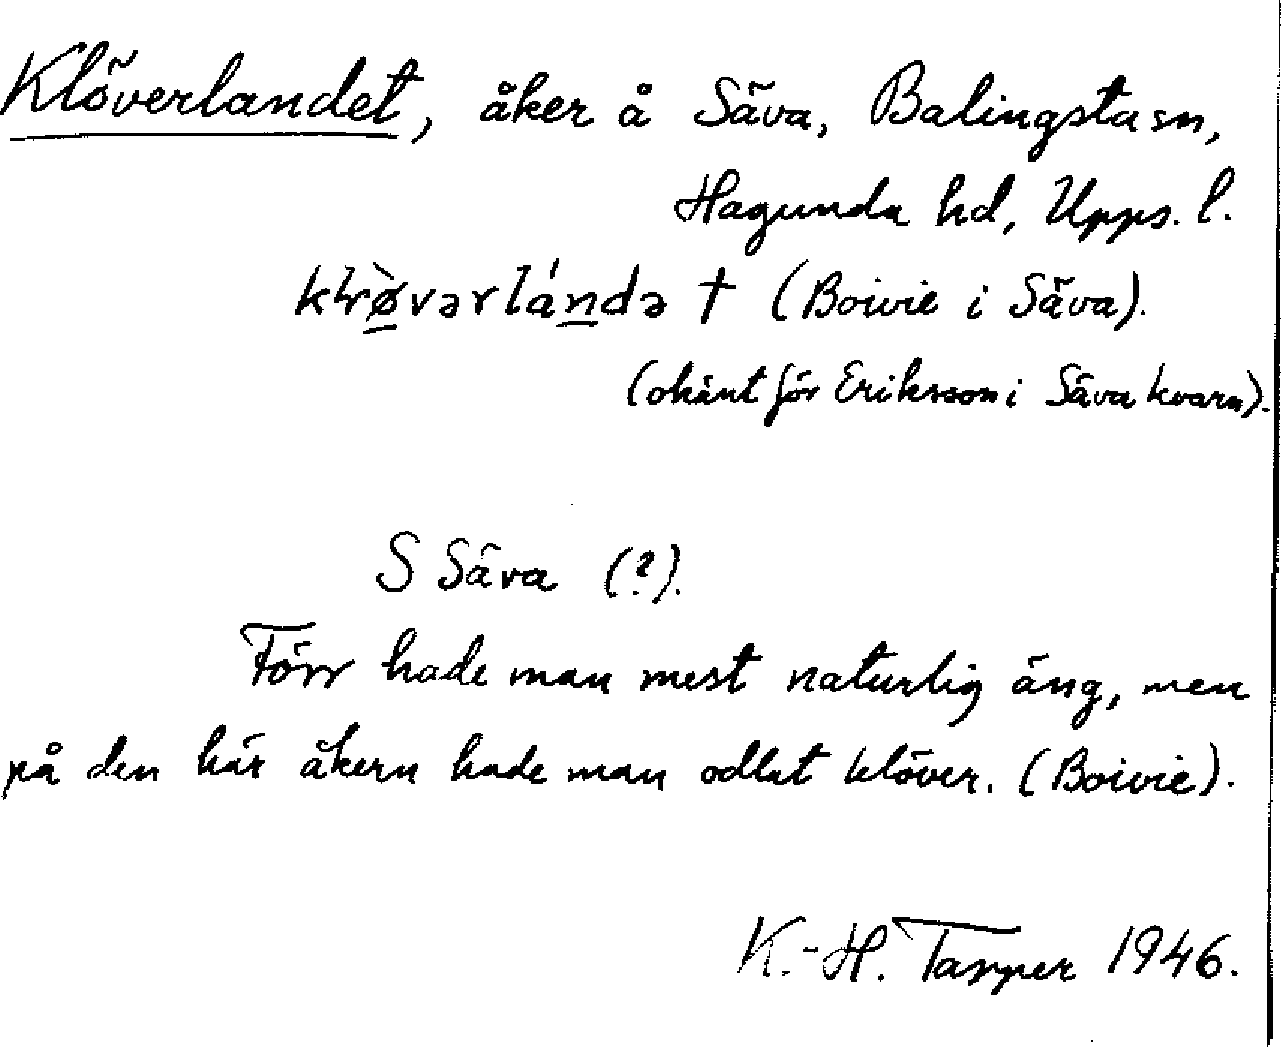 Klöverlandet, åker å Säva, Balingsta sn,
Hagunda hd, Upps. l.
(Boivie i Säva).
(okänt för Eriksson i Säva kvarn).
S Säva (?).
Förr hade man mest naturlig äng, men
på den här åkern hade man odlat klöver. (Boivie).
K.-H. Tasper 1946.